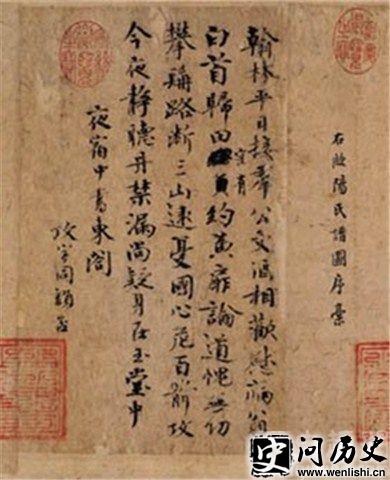 右歐陽氏譜圖序藁
翰林平日接羣公文酒相歡慰病翁
白首歸田空有約黃扉論道愧無功
攀髯路斷三山遠憂國心危百箭攻
今夜靜聽丹禁漏尚疑身在玉堂中
夜宿中書東閣
攻字同韻否
问历史
www.wenlishi.cn